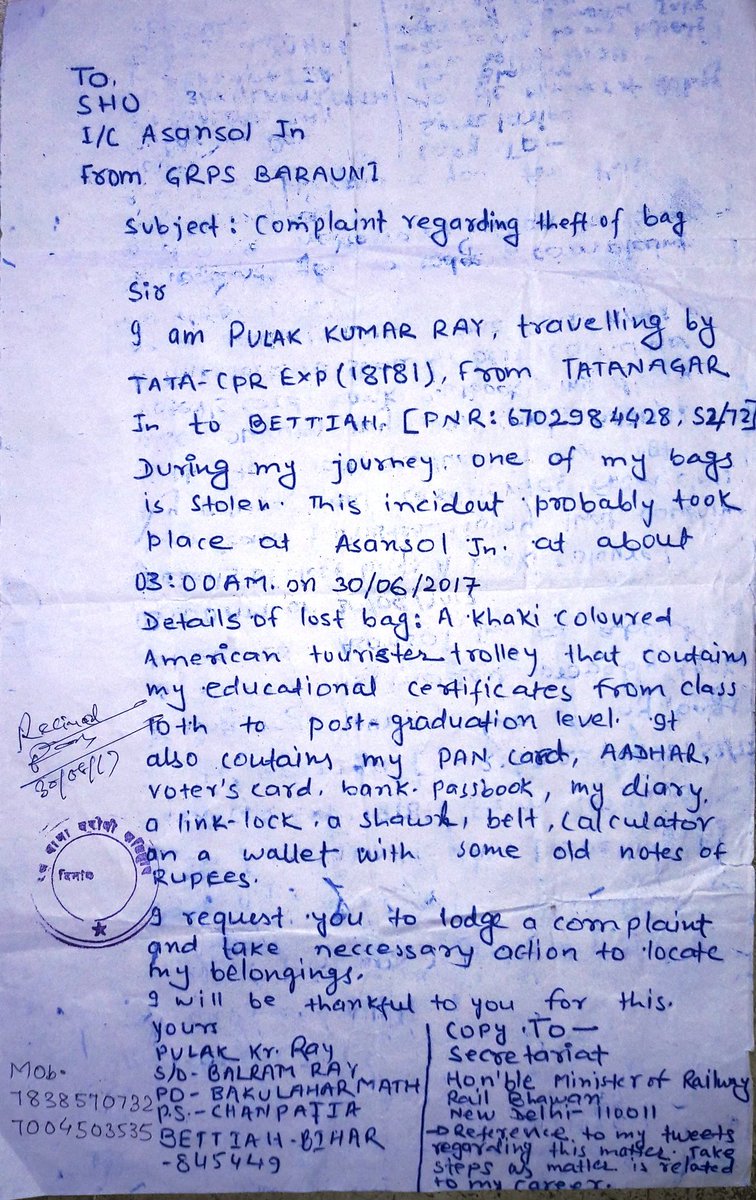 To,
SHO
I/C Asansol Jn
From GRPS BARAUNI
Subject: Complaint regarding theft of bag
Sir
I am PULAK KUMAR RAY, travelling by
TATA-CPR EXP (18181), From TATANAGAR
Jn to BETTIAH. [PNR: 6702984428, S2/72]
During my journey one of my bags
is stolen. This incident probably took
place at Asansol Jn. at about
03:00AM. on 30/06/2017
Details of lost bag: A khaki coloured
American tourister trolley that contains
my educational certificates from class
10th to post-graduation level. It
also contains my PAN card, AADHAR,
voter's card, bank passbook, my diary,
a link-lock, a shawl, belt, calculator
an a wallet with some old notes of
Rupees.
I request you to lodge a complaint
and take neccessary action to locate
my belongings.
I will be thankful to you for this.
yours
PULAK Kr. Ray
S/O- BALRAM RAY
PO- BAKULAHAR MATH
P.S.- CHANPATIA
BETTIAH-BIHAR
-845449
Mob.
7838570732
7004503535
Copy To-
Secretariat
Hon'ble Minister of Railway
Rail Bhawan
New Delhi-110011
→ Reference to my tweets
regarding this matter. Take
steps as matter is related
to my career.
Received
30/06/17
दिनांक